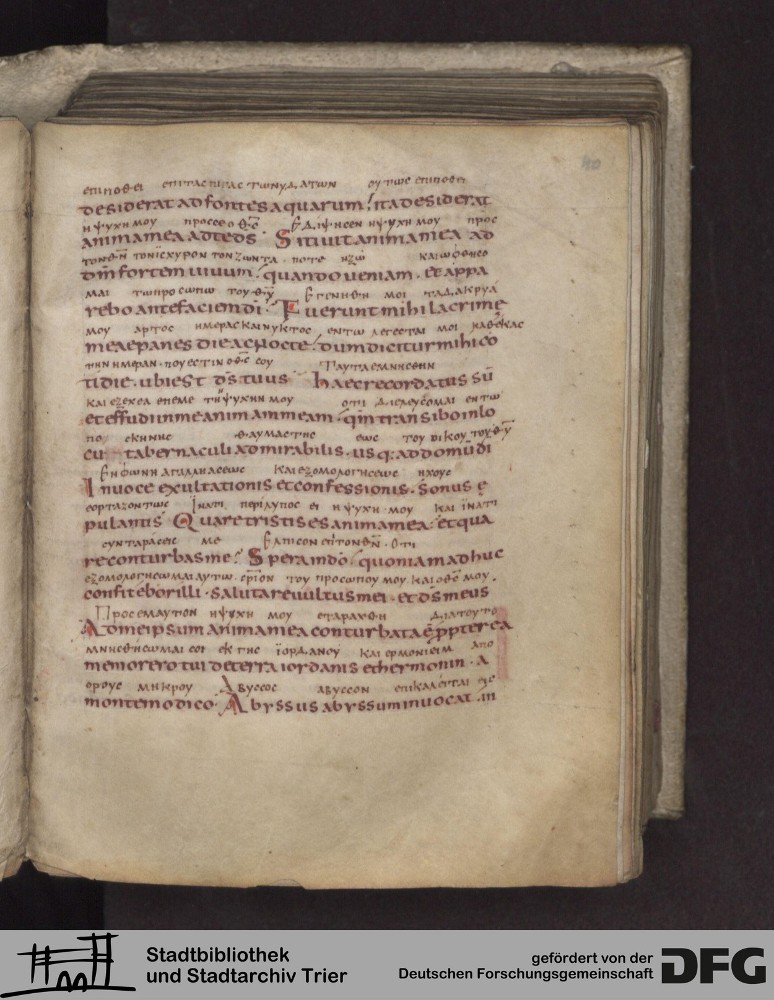 40
επιποθει επι τας πηγας των υδατων ουτωσ επιποθει
desiderat ad fontes aquarum ita desiderat
η ψυχη μου προσ σε ο θ̅ς̅ Εδιψησεν η ψυχη μου προς
anima mea ad te d̅s̅ Sitiuit anima mea ad
τον θ̅ν̅ τον ισχυρον τον ζωντα · ποτε ηξω και οφθησο
d̅m̅ fortem uiuum quando ueniam · et appa
μαι τω προσωπω του θ̅υ̅ Εγενηθη μοι τα δακρυα
rebo ante faciem d̅i̅ · Fuerunt mihi lacrime
μου αρτος ημερας και νυκτος εν τω λεγεσται μοι καθεκας
meae panes die ac nocte dum dicitur mihi co
την ημεραν · που εστιν ο θ̅ς̅ σου Ταυτα εμνησθην
tidie · ubi est d̅s̅ tuus haec recordatus su̅
και εξεχεα επ εμε τη ψυχην μου οτι διελευσομαι εν τω
et effudi in me animam meam · q̅m̅ transibo in lo
σκηνης θαυμαστης εως του οικου του θ̅υ̅
cu tabernaculi admirabilis · usq: ad domu̅ d̅i̅
Εν φωνη αγαλλιασεως και εξομολογησεωσ ηχους
In uoce exultationis et confessionis · sonus ę
εορταζοντως Ινατι περιλυπος ει η ψυχη μου και ϊνατι
pulantis Quare tristis es anima mea · et qua
συνταρασεις με Ελπισον επι τον θ̅ν̅ · οτι
re conturbas me Spera in d̅o̅ quoniam adhuc
εξομολογησωμαι αυτω · του προσωπου μου και ο θ̅ς̅ μου ·
confitebor illi · salutare uultus mei · et d̅s̅ meus
Προς εμαυτον η ψυχη μου εταραχθη δια τουτο
Ad me ipsum anima mea conturbata e̅ propterea
μνησθησωμαι σοι εκ γης ϊορδανου και ερμονιειμ απο
memorero tui de terra iordanis et hermoniim · a
ορους μηκρου Αβυσσος αβυσσον επικαλειται εις
monte modico · Abyssus abyssum inuocat · in
Stadtbibliothek
und Stadtarchiv Trier
gefördert von der
Deutschen Forschungsgemeinschaft
DFG